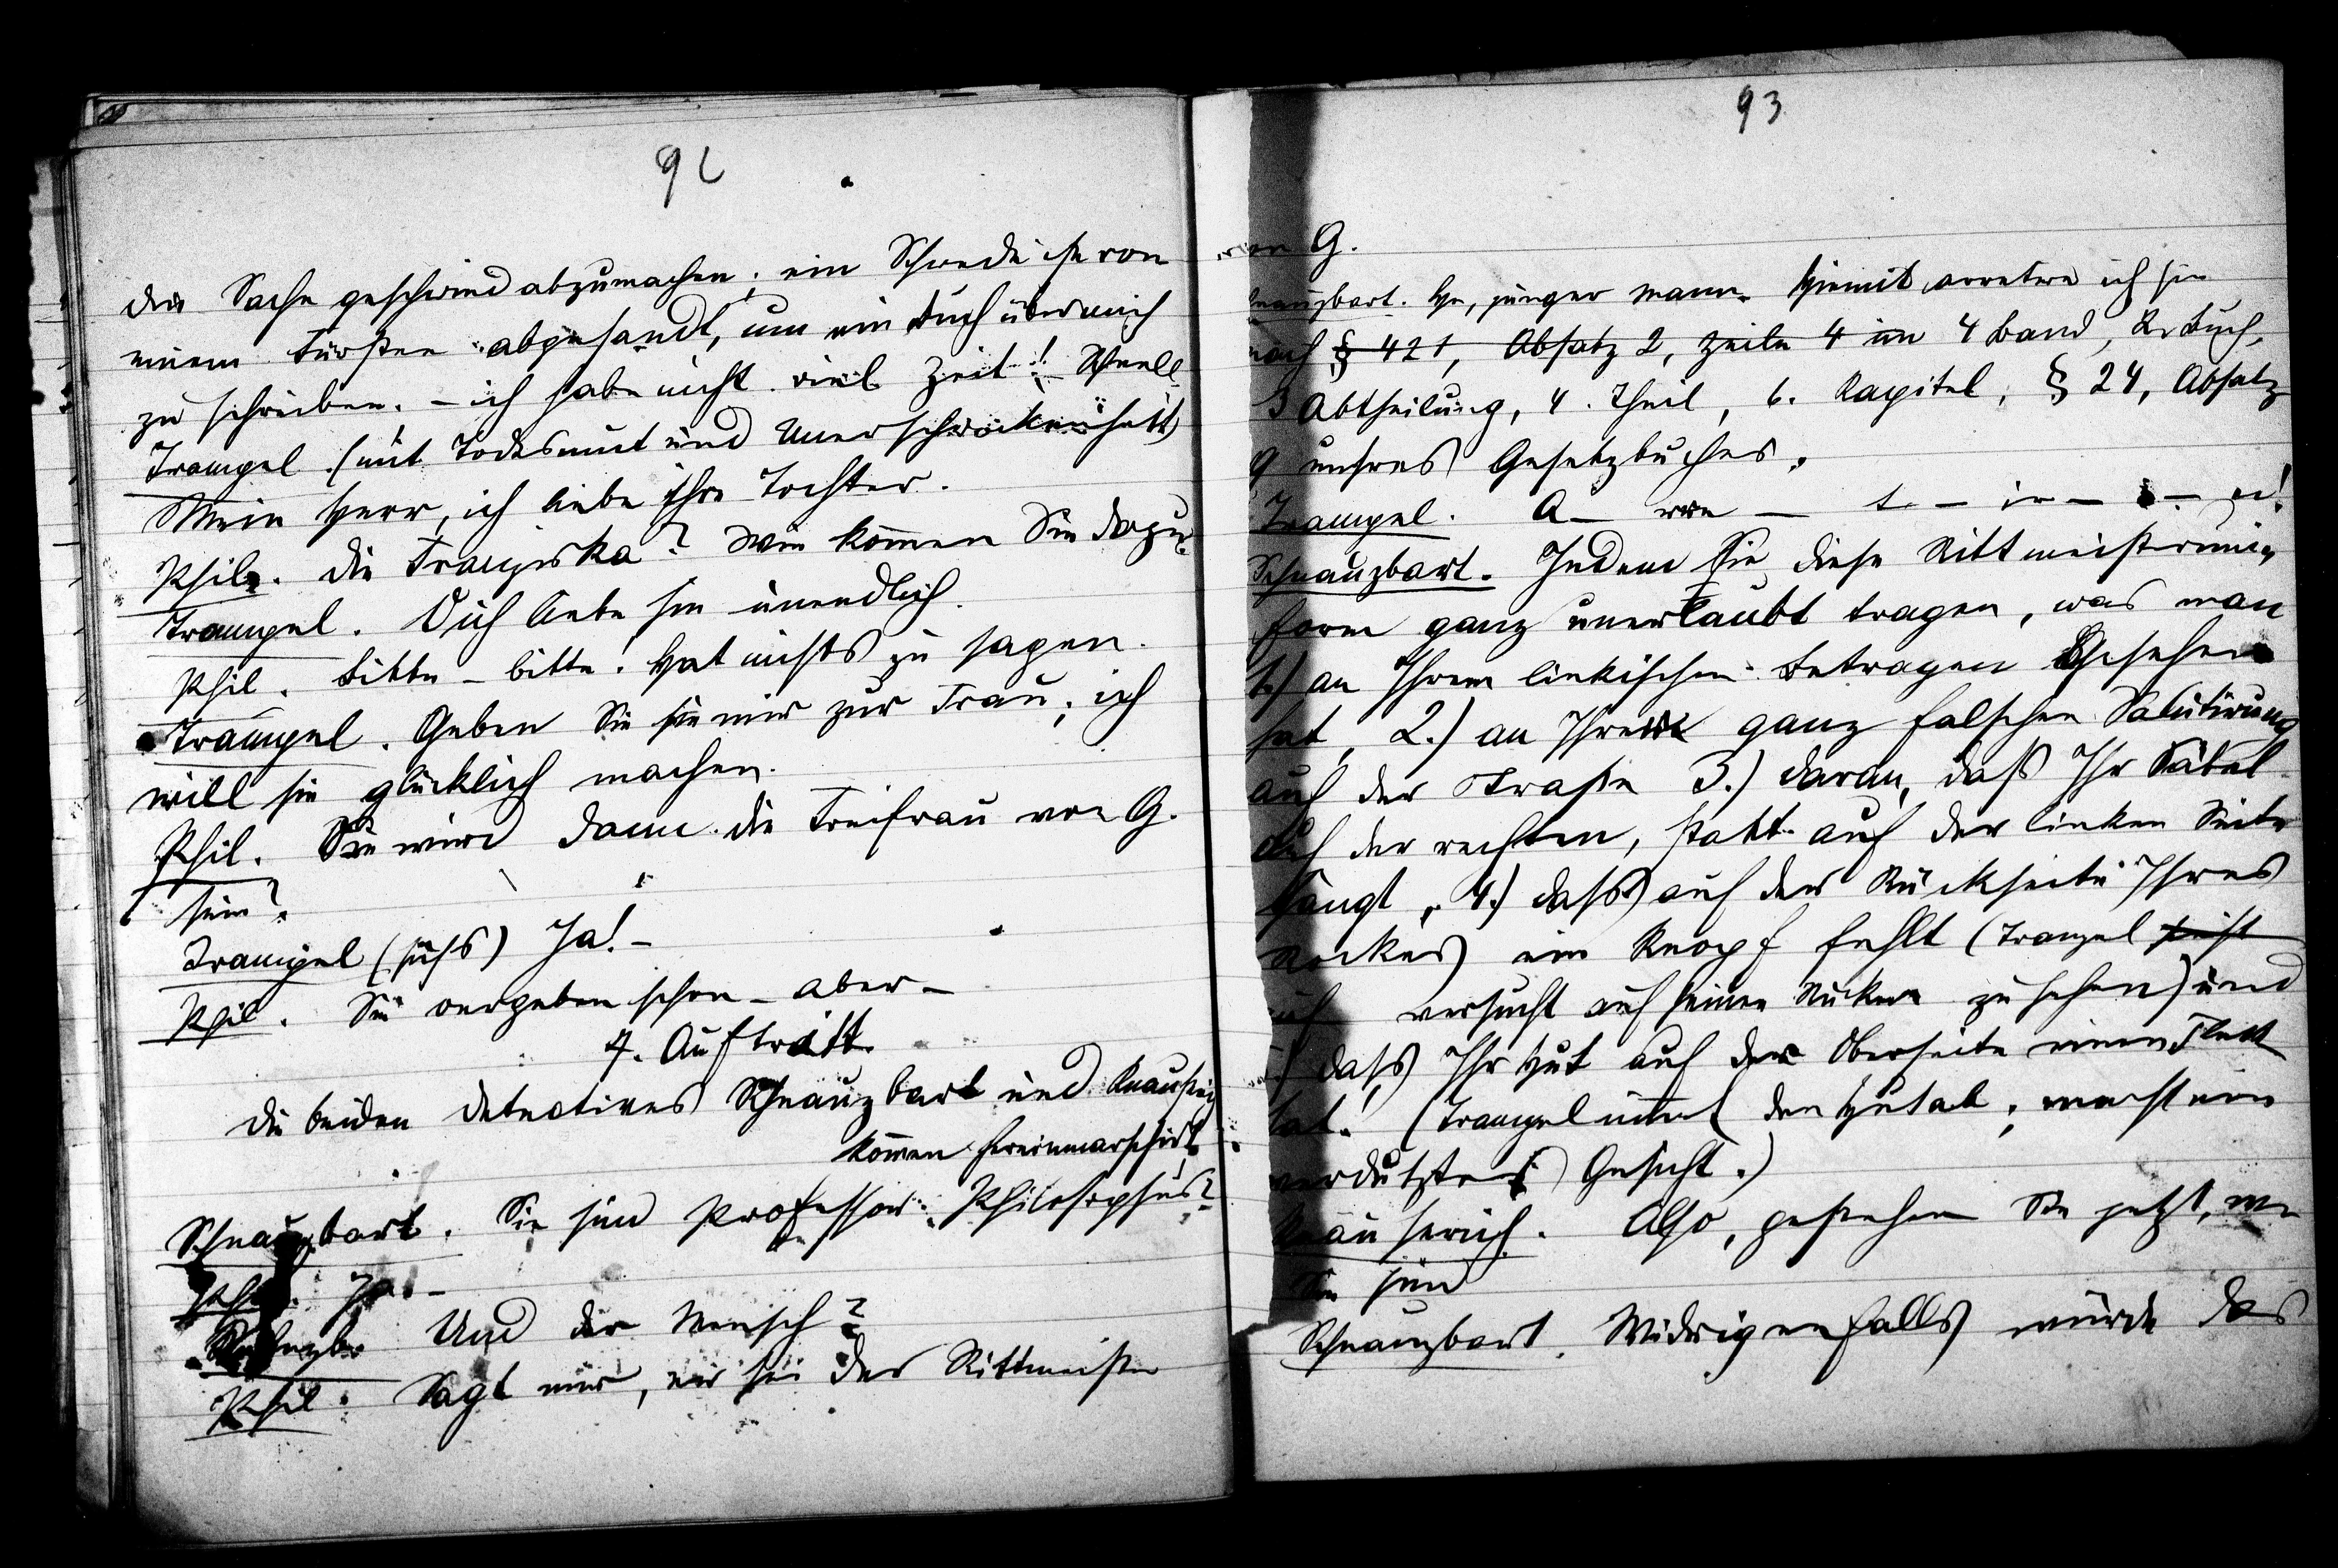 92
die Sache geschwind abzumachen; ein Schwede ist von
einem Fürsten abgesandt, um ein Buch über mich
zu schreiben, – ich habe nicht viel Zeit! Schnell
Trampel (mit Todesmut und Unerschrockenheit)
Mein Herr, ich liebe ihre Tochter.
Phil. Die Franziska? Wie kommen Sie dazu?
Trampel. Ich liebe sie unendlich.
Phil. Bitte – bitte. Hat nichts zu sagen.
Trampel. Geben Sie sie mir zur Frau; ich
will sie glücklich machen.
Phil. Sie wird dann die Freifrau von G.
sein?
Trampel (süß) Ja! –
Phil. Sie vergeben schon – aber –
7. Auftritt.
Die beiden Detectives Schnauzbart und
kommen hereinmarschirt.
Schnauzbart. Sie sind Professor Philosophus?
Phil. Ja. –
Und der Mensch?
Phil. Sagt mir, er sei der Rittmeister
93
von G.
Schnauzbart. He, junger Mann. Hiemit arretere ich sie
nach § 421, Absatz 2, Zeile 4 im 4 Band, 2. Buch,
3 Abtheilung, 4. Theil, 6. Kapitel, § 24, Absatz
9 unsres Gesetzbuches.
Trampel. A –
Schnauzbart. Indem Sie diese Rittmeisteruni-
form ganz unerlaubt tragen, was man
1.) an Ihrem linkischen Betragen gesehen
hat, 2.) an Ihrer ganz falschen Salutirung
auf der Straße 3.) daran, daß Ihr Säbel
auf der rechten, statt auf der linken Seite
hängt, 4.) daß auf der Rückseite Ihres
Rockes ein Knopf fehlt (Trampel sieht
versucht auf seinen Rücken zu sehen) und
5) daß Ihr Hut auf der Oberseite einen Fleck
hat! (Trampel nimt den Hut ab; macht ein
verdutztes Gesicht.)
Also, gestehen Sie jetzt, wer
Sie sind
Schnauzbart. Widrigenfalls würde das